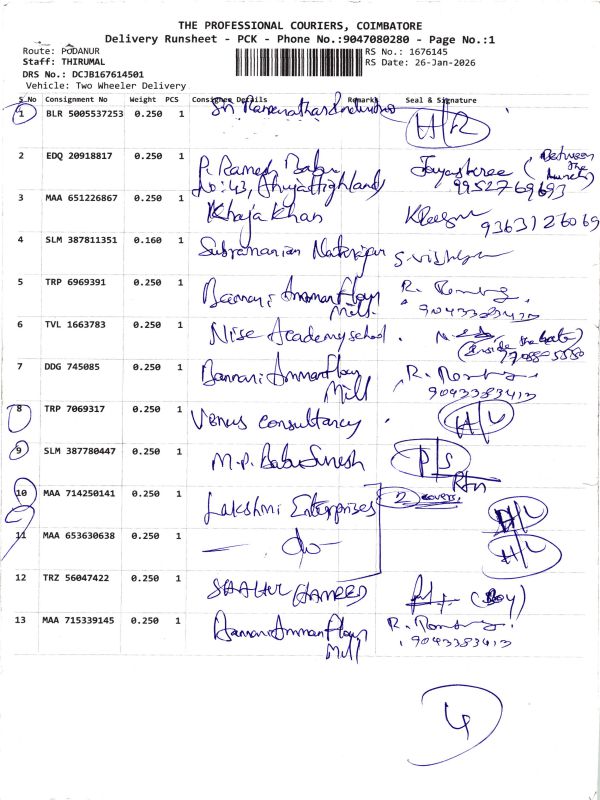 THE PROFESSIONAL COURIERS, COIMBATORE
Delivery Runsheet - PCK - Phone No.:9047080280 - Page No.:1
Route: PODANUR
RS No.: 1676145
Staff: THIRUMAL
RS Date: 26-Jan-2026
DRS No.: DCJB167614501
Vehicle: Two Wheeler Delivery
S No Consignment No Weight PCS Consignee Details Remarks Seal & Signature
1 BLR 5005537253 0.250 1 Sri H/L
2 EDQ 20918817 0.250 1 P. Ramesh Babu Jayashree (Between the
No: 43, 9952769693
3 MAA 651226867 0.250 1 Khaja Khan 9363126069
4 SLM 387811351 0.160 1 Subramanian
5 TRP 6969391 0.250 1 Bannari Amman Flour R.
Mill. 9043383413
6 TVL 1663783 0.250 1 Nise Academy school.
(Inside the Gate)
7 DDG 745085 0.250 1 Bannari Amman Flour R.
Mill 9043383413
8 TRP 7069317 0.250 1 Venus Consultancy H/L
9 SLM 387780447 0.250 1 M.P. Babu Suresh P/S
Rtn
10 MAA 714250141 0.250 1 Lakshmi Enterprises 2 covers. H/L
11 MAA 653630638 0.250 1 — do — H/L
12 TRZ 56047422 0.250 1 SHAHUL HAMEED (Boy)
13 MAA 715339145 0.250 1 Bannari Amman Flour R.
Mill 9043383413
4